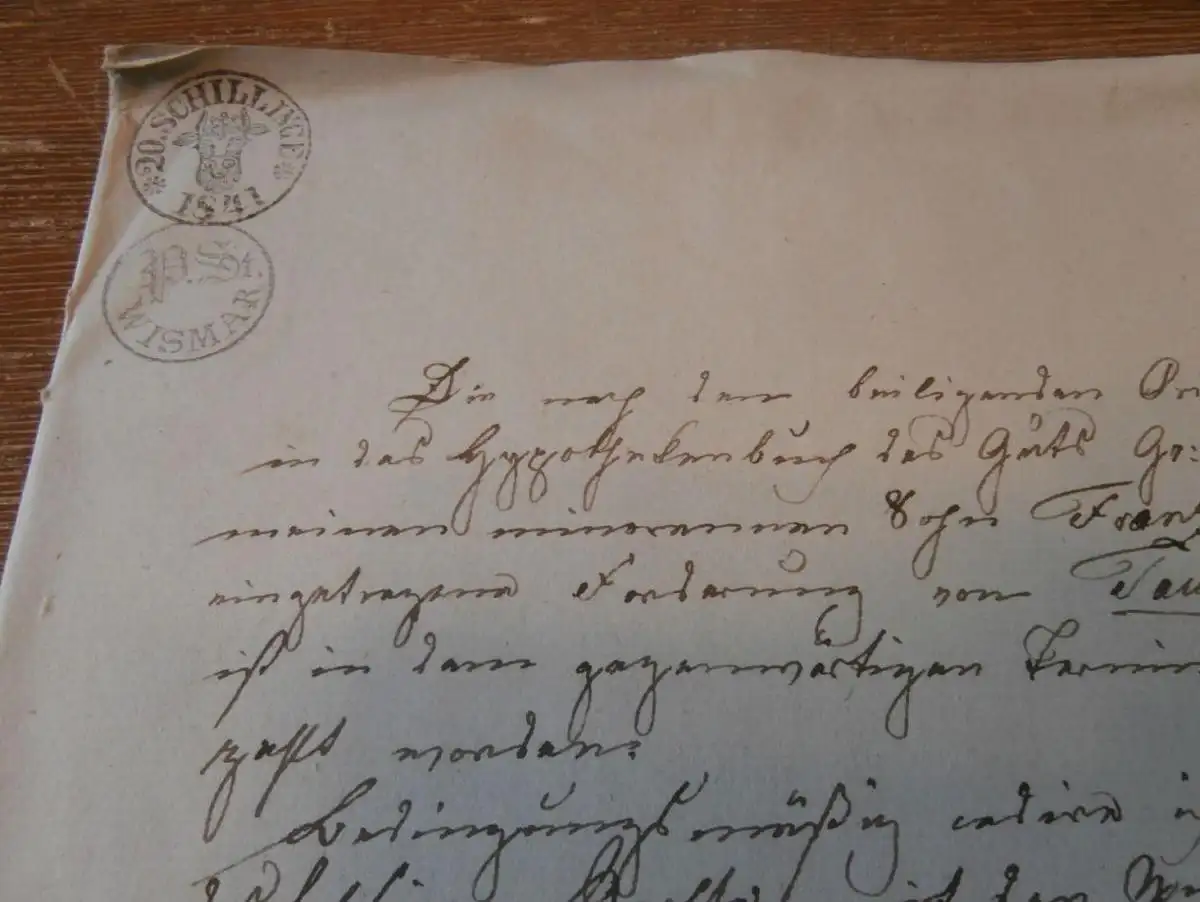 *20. SCHILLINGE*
1841
P. St.
WISMAR
Die nach dem beiligenden
in das Hyppothekenbuch des Guts Go:
meinen minorennen Sohn
eingetragene Forderung von
ist in dem gegenwärtigen
zahlt worden.
Bedingungsmäßig cedire